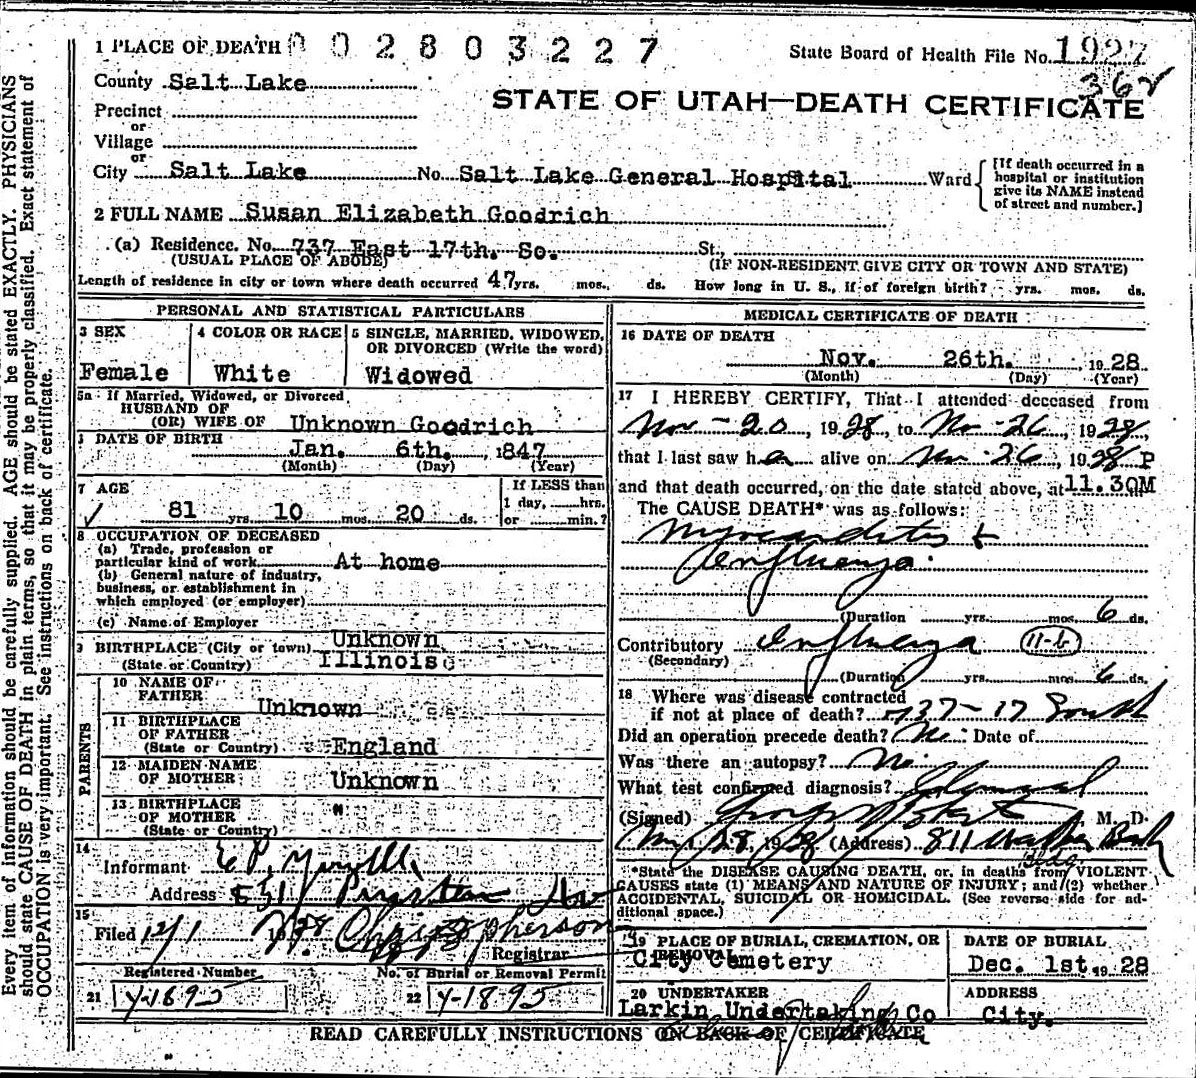 1 PLACE OF DEATH 002803227
State Board of Health File No. 1927
362
County Salt Lake
STATE OF UTAH—DEATH CERTIFICATE
Precinct
or
Village
or
City Salt Lake No. Salt Lake General Hospital Ward
[If death occurred in a
hospital or institution
give its NAME instead
of street and number.]
2 FULL NAME Susan Elizabeth Goodrich
(a) Residence. No. 737 East 17th. So. St.,
(USUAL PLACE OF ABODE) (IF NON-RESIDENT GIVE CITY OR TOWN AND STATE)
Length of residence in city or town where death occurred 47 yrs. mos. ds. How long in U. S., if of foreign birth? yrs. mos. ds.
PERSONAL AND STATISTICAL PARTICULARS
3 SEX
Female
4 COLOR OR RACE
White
5 SINGLE, MARRIED, WIDOWED,
OR DIVORCED (Write the word)
Widowed
5a If Married, Widowed, or Divorced
HUSBAND OF
(OR) WIFE OF Unknown Goodrich
DATE OF BIRTH
Jan. 6th. , 1847
(Month) (Day) (Year)
7 AGE
81 yrs. 10 mos. 20 ds.
If LESS than
1 day, hrs.
or min.?
8 OCCUPATION OF DECEASED
(a) Trade, profession or
particular kind of work At home
(b) General nature of industry,
business, or establishment in
which employed (or employer)
(c) Name of Employer
9 BIRTHPLACE (City or town) Unknown
(State or Country) Illinois
PARENTS
10 NAME OF
FATHER Unknown
11 BIRTHPLACE
OF FATHER
(State or Country) England
12 MAIDEN NAME
OF MOTHER Unknown
13 BIRTHPLACE
OF MOTHER "
(State or Country)
14
Informant E P.
Address
15
Filed 12/1 1928
Registrar
Registered Number
21 Y-1895
No. of Burial or Removal Permit
22 Y-1895
MEDICAL CERTIFICATE OF DEATH
16 DATE OF DEATH
Nov. 26th. , 1928
(Month) (Day) (Year)
17 I HEREBY CERTIFY, That I attended deceased from
Nov - 20, 1928, to Nov - 26, 1928,
that I last saw her alive on Nov - 26, 1928 P
and that death occurred, on the date stated above, at 11.30 M
The CAUSE DEATH* was as follows:
Myocarditis +
Influenza
(Duration yrs. mos 6 ds.
Contributory Influenza 11-b
(Secondary)
(Duration yrs. mos 6 ds.
18 Where was disease contracted
if not at place of death? 737-17 South
Did an operation precede death? No Date of
Was there an autopsy? No
What test confirmed diagnosis?
(Signed) M. D.
Nov. 28, 1928 (Address) 811 Walker Bank
Bldg.
*State the DISEASE CAUSING DEATH, or, in deaths from VIOLENT
CAUSES state (1) MEANS AND NATURE OF INJURY; and (2) whether
ACCIDENTAL, SUICIDAL OR HOMICIDAL. (See reverse side for ad-
ditional space.)
19 PLACE OF BURIAL, CREMATION, OR
REMOVAL
City Cemetery
DATE OF BURIAL
Dec. 1st. 1928
20 UNDERTAKER
Larkin Undertaking Co
ADDRESS
City.
READ CAREFULLY INSTRUCTIONS ON BACK OF CERTIFICATE
Every item of information should be carefully supplied. AGE should be stated EXACTLY. PHYSICIANS
should state CAUSE OF DEATH in plain terms, so that it may be properly classified. Exact statement of
OCCUPATION is very important. See instructions on back of certificate.